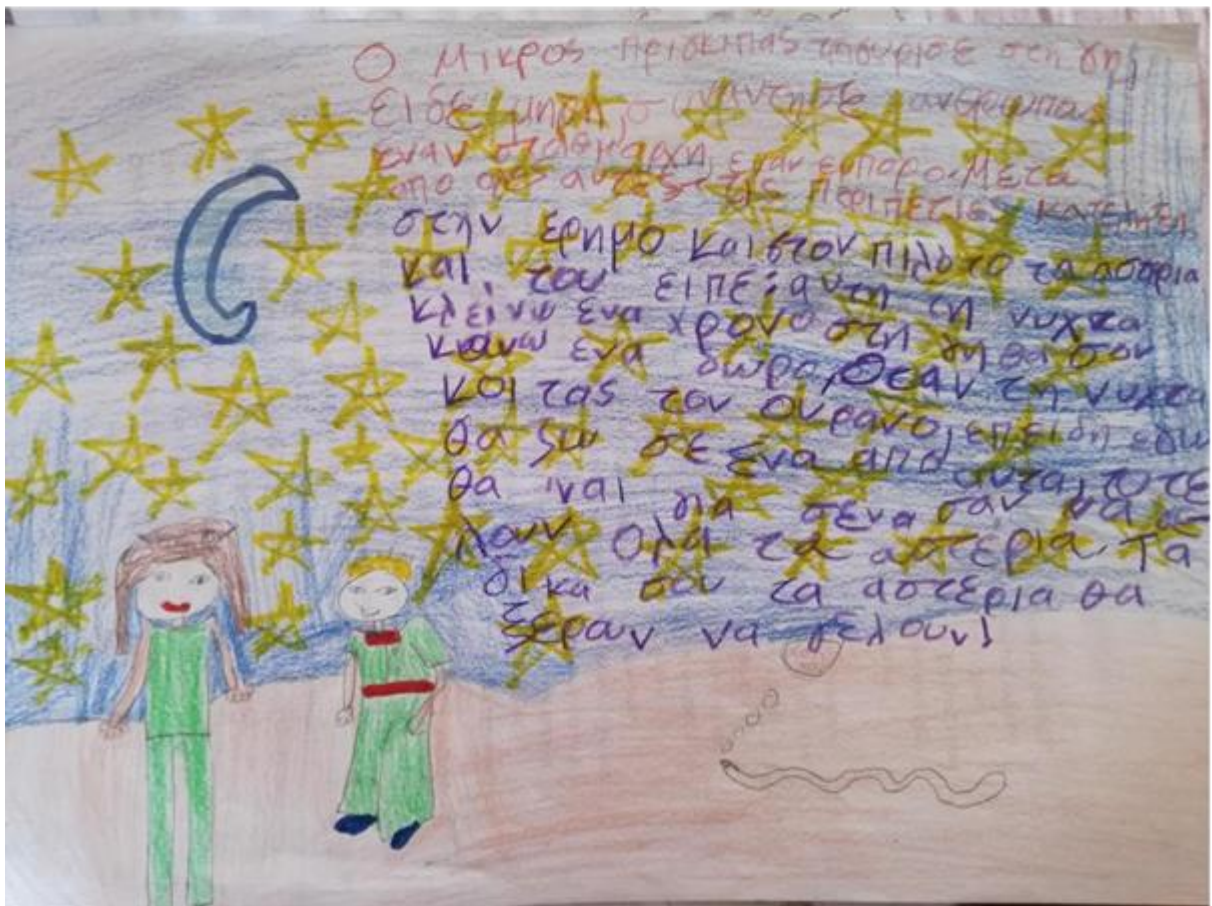 Ο Μικρος πρισκιπας γηουρισε στη γη,
ειδε μηρη, συναντησε ανθρωπους
εναν σταθμαρχη, εναν ενπορο. Μετα
απο ολες αυτες τις περιπετιες κατεληξε
στην ερημο και στον πιλοτο τα αστρια
και, του ειπε: αυτη τη νυχτα
κλεινω ενα χρονο στη γη θα σου
κανω ενα δωρο, Θεαν τη νυχτα
κοιτας τον ουρανο, επειδη εγω
θα ζω σε ενα απο αυτα, τοτε
θα 'ναι για σενα σαν να γε
λουν ολα τα αστερια. Τα
δικα σου τα αστερια θα
ξερουν να γελουν!